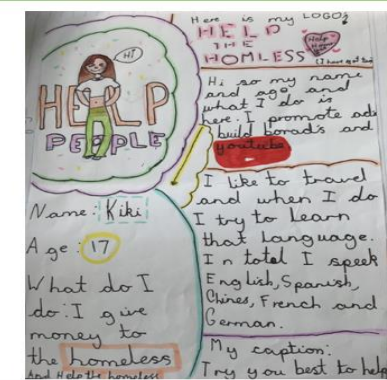 Hi
HELP
PEOPLE
Name: Kiki
Age: 17
What do I
do: I give
money to
the homeless
And Help the homeless
Here is my LOGO:
HELP
THE
HOMLESS
Help
Hi so my name
and age and
what I do is
here. I promote ads
build borads and
youtube
I like to travel
and when I do
I try to learn
that language.
In totel I speek
English, Spanish,
Chines, French and
German.
My caption:
Try you best to help